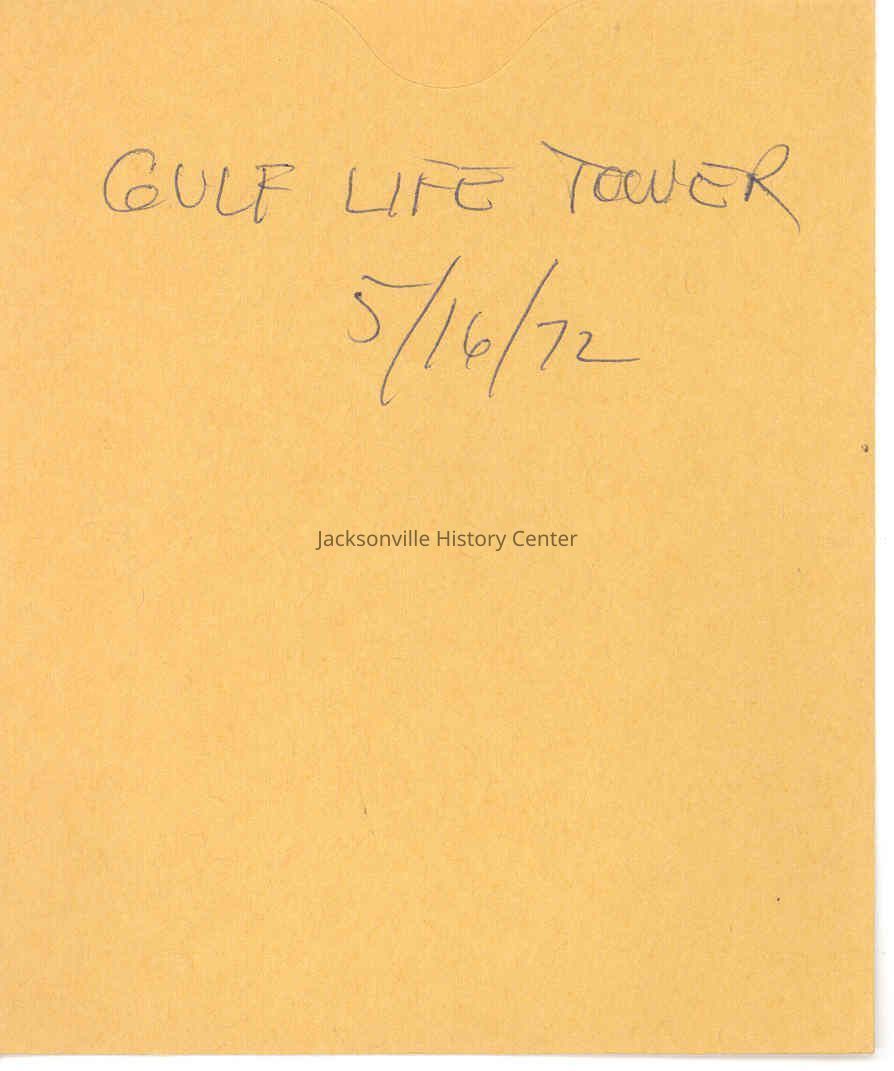 GULF LIFE TOWER
5/16/72
Jacksonville History Center